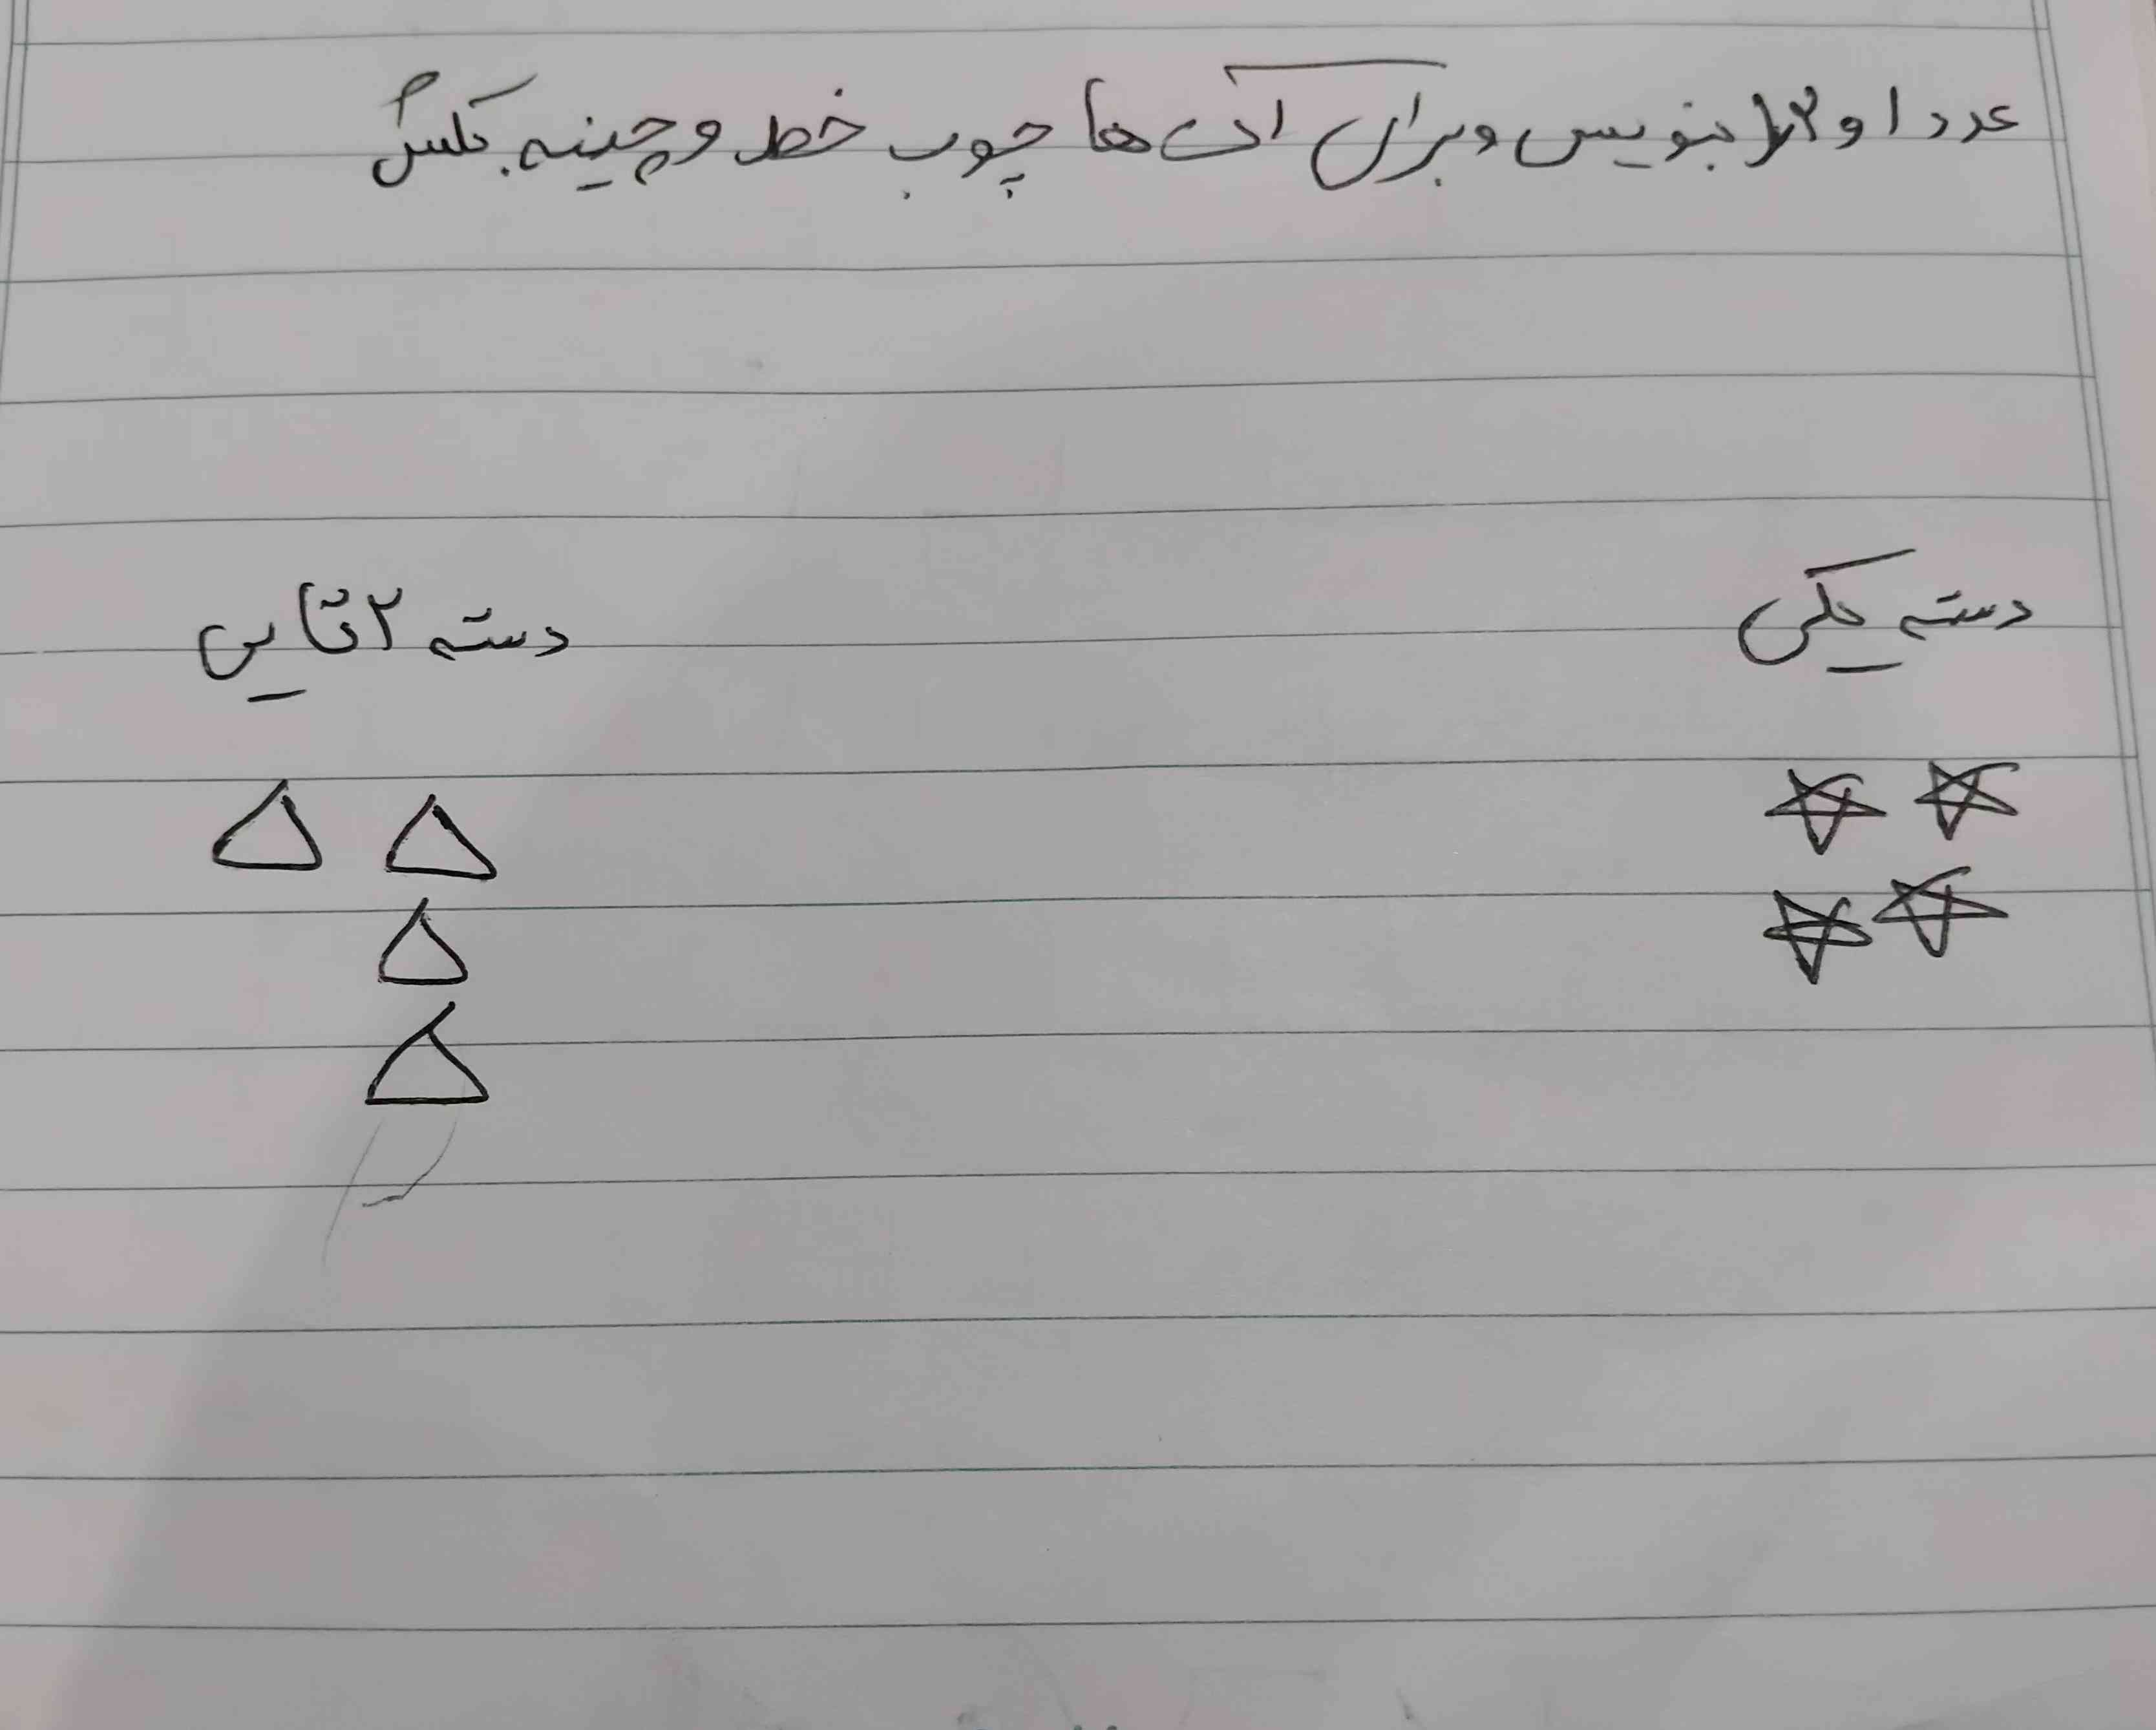 عدد ۱ و ۲ را بنویس و برای آن ها چوب خط و چینه بکش
دسته یکی
دسته ۲ تایی